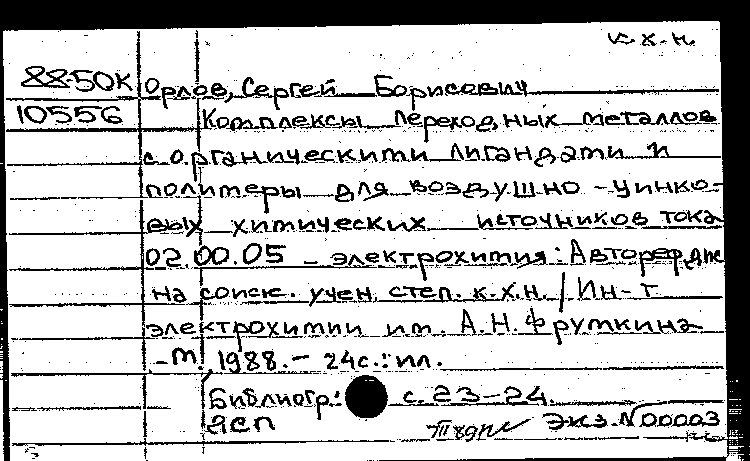 к.х.н.
88-50К Орлов, Сергей Борисович
10556 Комплексы переходных металлов
с органическими лигандами и
полимеры для воздушно-цинко-
вых химических источников тока
02.00.05 – электрохимия: Автореф. дис
на соиск. учен. степ. к.х.н. / Ин-т
электрохимии им. А.Н. Фрумкина
-М., 1988. – 24с.: ил.
Библиогр.: с. 23-24.
ДСП Экз. N00003